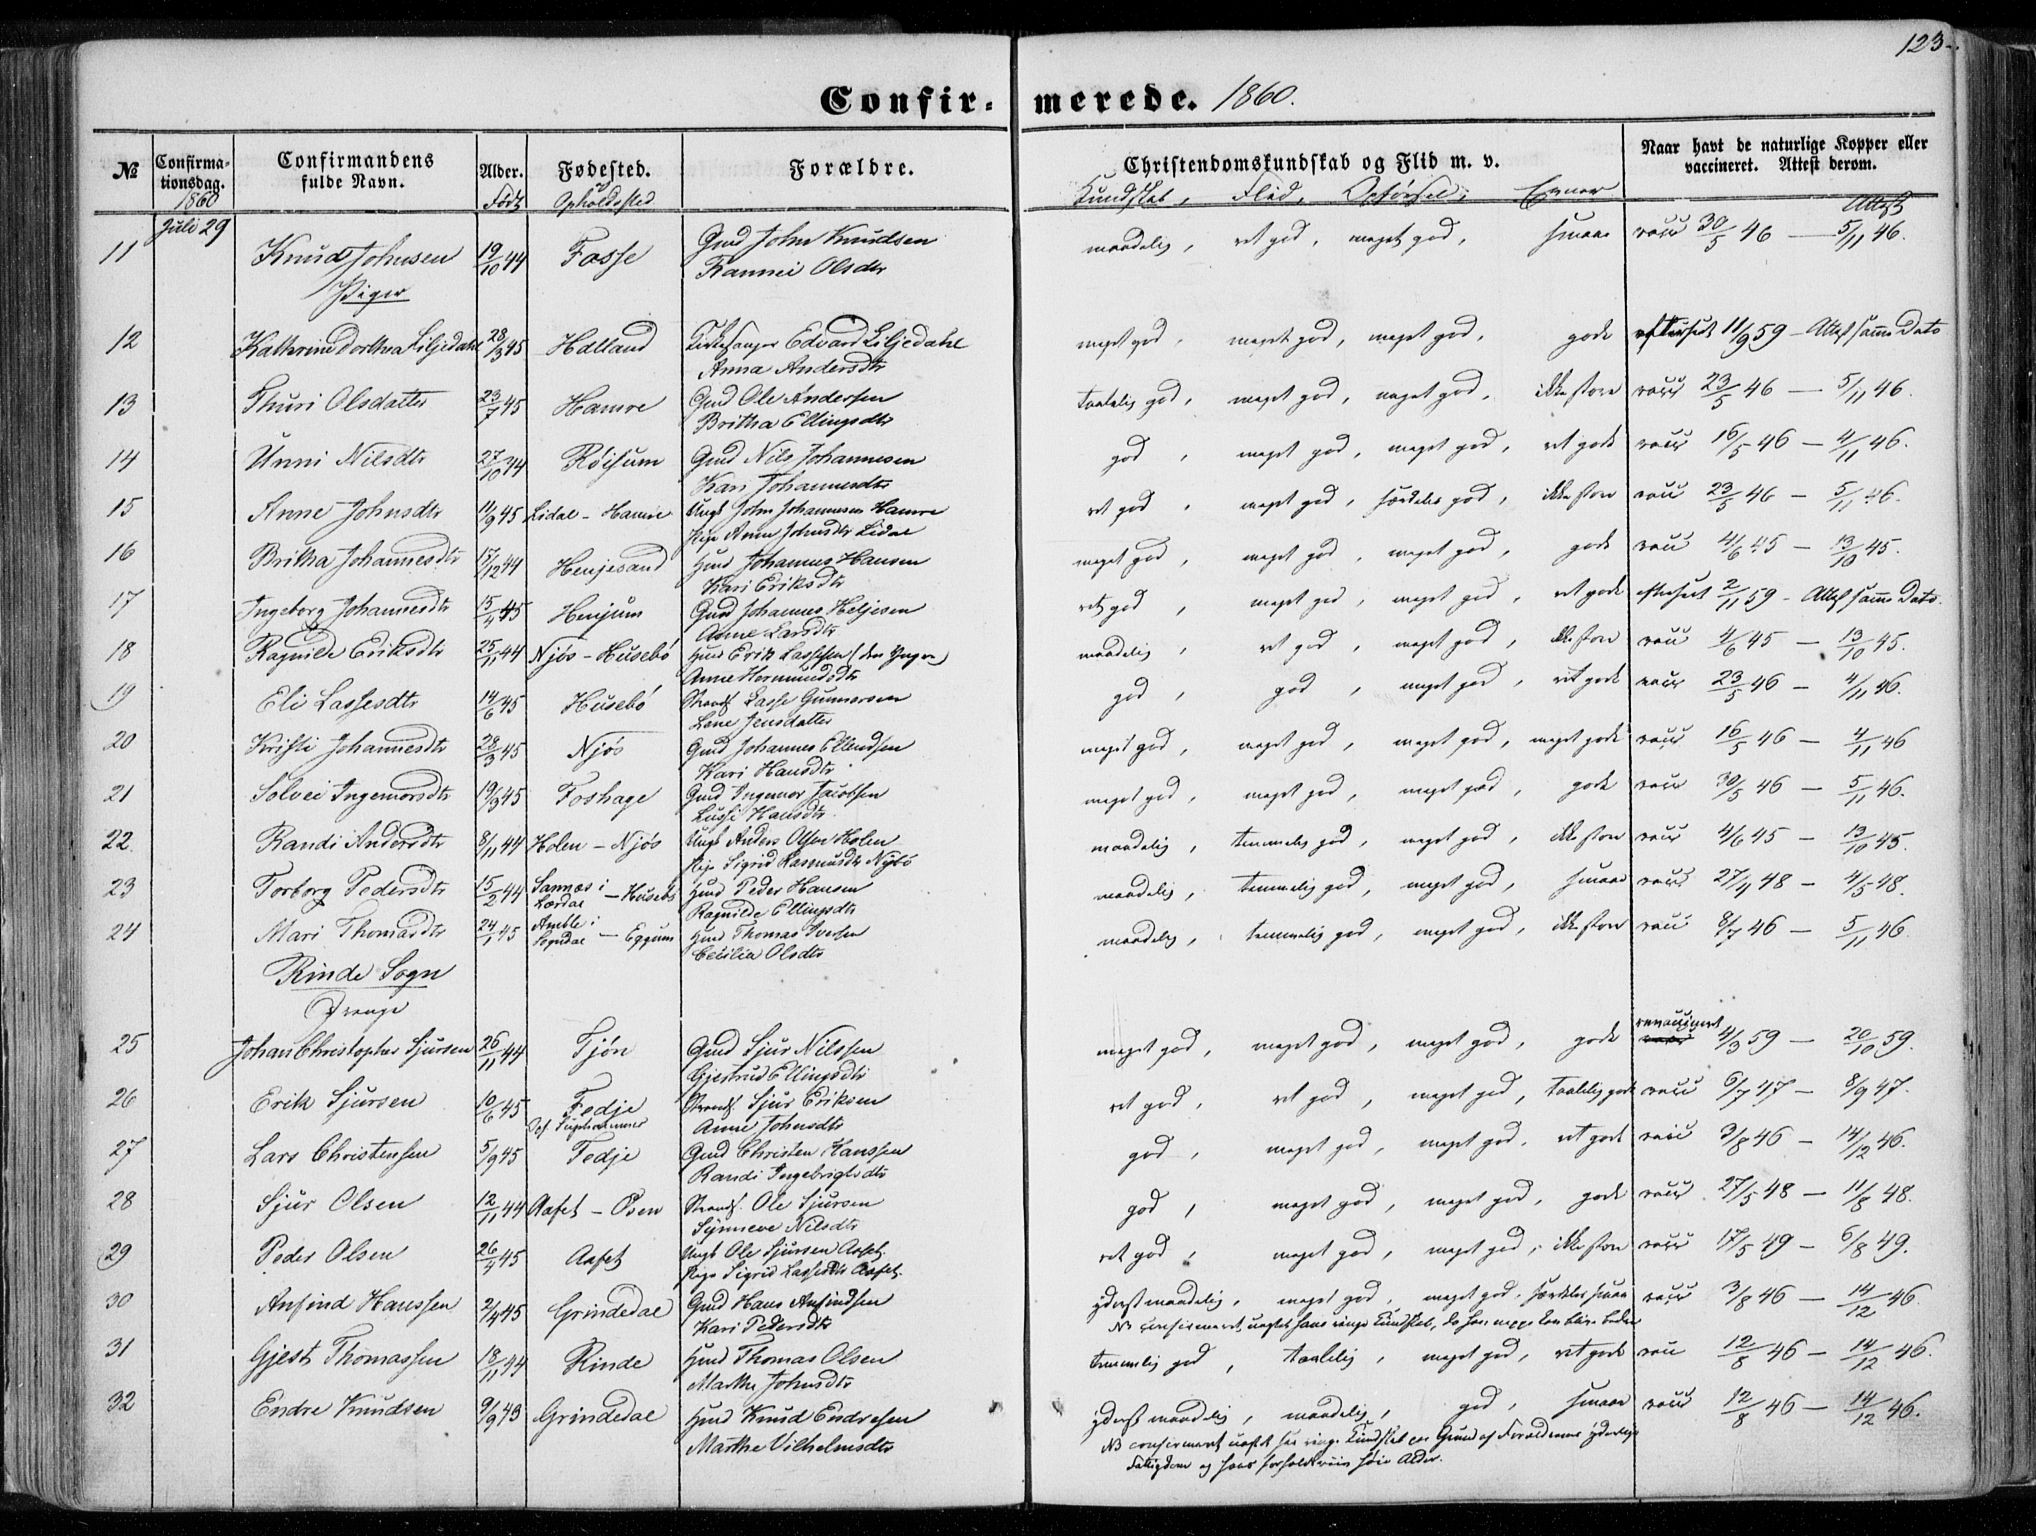 123.
Confir- merede. 1860.
№ Confirma-tionsdag. Confirmandens fulde Navn. Alder. Fødested. Forældre. Christendomskundskab og Flid m. v. Naar havt de naturlige Kopper eller vaccineret. Attest derom.
1860 Født Opholdssted Kundskab, Flid, Opførsel, Evner Attest
Juli 29
11 Knud Johnsen 19/10 44 Fosse Gmd John Knudsen maadelig, ret god, meget god, smaae vacc 30/5 46 — 5/11 46.
Rannei Olsdtr
Piger
12 Kathrine Dorthea Liljedahl 28/3 45 Halland Kirkesanger Edvard Liljedahl meget god, meget god, meget god, gode efterseet 11/9 59 - Attest samme Dato
Anna Andersdtr
13 Thuri Olsdatter 23/7 45 Hamre Gmd Ole Andersen taalelig god, meget god, meget god, ikke store vacc 23/5 46 — 5/11 46.
Britha Ellingsdtr
14 Unni Nilsdtr 27/10 44 Røisum Gmd Nils Johannesen god, meget god, meget god, ret gode vacc 16/5 46 — 4/11 46.
Kari Johannesdtr
15 Anne Johnsdtr 11/9 45 Lidal - Hamre Ungk John Johannesen Hamre ret god, meget god, særdeles god, ikke store vacc 23/5 46 — 5/11 46.
Pige Anne Johnsdtr Lidal
16 Britha Johannesdtr 15/12 44 Henjesand Hmd Johannes Hansen meget god, meget god, meget god, gode vacc 4/6 45 — 13/10 45.
Kari Eriksdtr
17 Ingeborg Johannesdtr 15/4 45 Henjum Gmd Johannes Heljesen ret god, meget god, meget god, ret gode efterseet 2/11 59 - Attest samme Dato.
Anne Larsdtr
18 Ragnilde Eriksdtr 25/11 44 Njøs - Husebø Hmd Erik Lassesen (den Yngre) maadelig, ret god, meget god, ikke store vacc 4/6 45 — 13/10 45.
Anne Hermundsdtr
19 Eli Lassesdtr 14/6 45 Husebø Strands. Lasse Gunnarsen god, god, meget god, ret gode vacc 23/5 46 — 4/11 46.
Lene Jensdatter
20 Kristi Johannesdtr 28/3 45 Njøs Gmd Johannes Ellendsen meget god, meget god, meget god, meget gode vacc 16/5 46 — 4/11 46
Kari Hansdtr
21 Solvei Ingemorsdtr 19/3 45 Foshage Gmd Ingemor Jacobsen meget god, meget god, meget god, gode vacc 30/5 46 — 5/11 46.
Lussi Hansdtr
22. Randi Andersdtr 8/11 44 Holen - Njøs Ungk Anders Olsen Holen maadelig, temmelig god, meget god, ikke store vacc 4/6 45 — 13/10 45.
Pige Sigrid Rasmusdtr Nybø
23 Torborg Pedersdtr 15/2 44 Sannæs i Lærdal - Husebø Hmd Peder Hansen maadelig, temmelig god, meget god, smaae vacc 27/4 48 — 4/5 48.
Ragnilde Ellingsdtr
24 Mari Thomasdtr 24/1 45 Amble i Sogndal - Eggum Hmd Thomas Iversen maadelig, temmelig god, meget god, ikke store vacc 8/7 46 — 5/11 46.
Cecilia Olsdtr
Rinde Sogn
Drenge
25 Johan Christopher Sjursen 26/11 44 Tjøn Gmd Sjur Nilssen meget god, meget god, meget god, gode revaccineret 4/3 59 — 20/10 59.
Gjertrud Ellingsdtr
26 Erik Sjursen 10/6 45 Fedje Strands. Sjur Eriksen ret god, ret god, meget god, taalelig gode vacc 6/7 47 — 8/9 47.
Anne Johnsdtr
27 Lars Christensen 5/9 45 Fedje Gmd Christen Hanssen god, meget god, meget god, ret gode vacc 3/8 46 — 14/12 46.
Randi Ingebrigtsdtr
28 Sjur Olsen 12/11 44 Aafet - Øsen Strands. Ole Sjursen god, meget god, meget god, gode vacc 27/5 48 — 11/8 48.
Synneve Nilsdtr
29 Peder Olsen 26/4 45 Aafet Ungk Ole Sjursen Aafet. ret god, meget god, meget god, ikke store vacc 17/5 49 — 6/8 49.
Pige Sigrid Lassesdtr Aafet.
30 Anfind Hanssen 2/4 45 Grindedal Gmd Hans Anfindsen yderst maadelig, meget god, meget god, særdeles smaae vacc 3/8 46 — 14/12 46.
Kari Pedersdtr NB confirmeret uagtet hans ringe Kundskab, da han neppe kan blive bedre
31 Gjest Thomassen 18/11 44 Rinde Hmd Thomas Olsen temmelig god, taalelig, meget god, ret gode vacc 12/8 46 — 14/12 46.
Marthe Johnsdtr
32 Endre Knudsen 9/9 43 Grindedal Hmd Knud Endresen yderst maadelig, maadelig, god, smaae vacc 12/8 46 — 14/12 46.
Marthe Vilhelmsdtr NB confirmeret uagtet sin ringe Kundskab paa Grund af Forældrenes yderlige
Fattigdom og hans forholdsviis høie Alder.